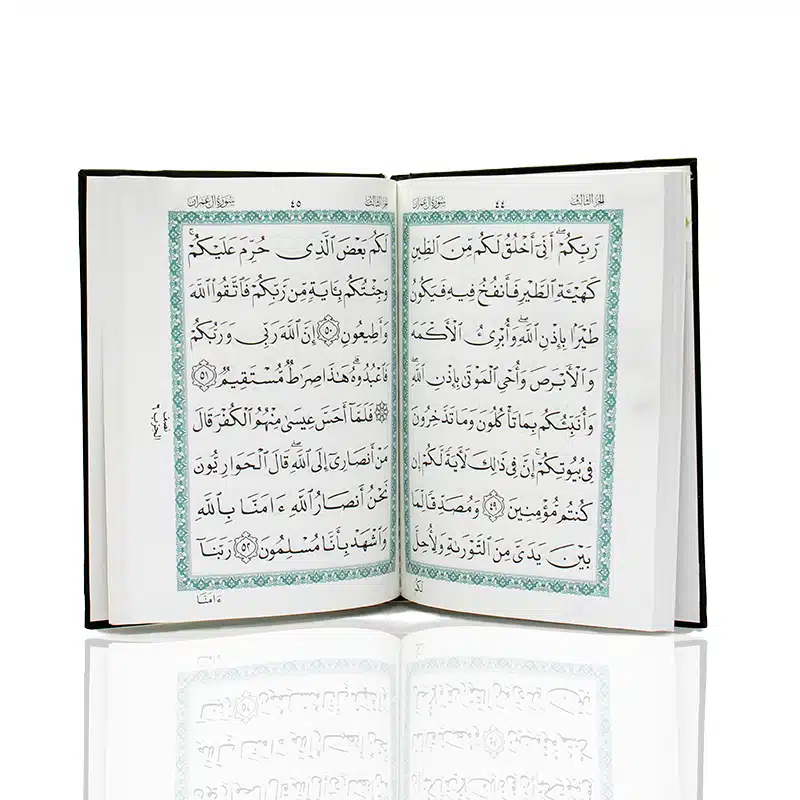 الجزء الثالث ٤٤ سورة آل عمران
رَبِّكُمْ ۖ أَنِّىٓ أَخْلُقُ لَكُم مِّنَ ٱلطِّينِ
كَهَيْـَٔةِ ٱلطَّيْرِ فَأَنفُخُ فِيهِ فَيَكُونُ
طَيْرًۢا بِإِذْنِ ٱللَّهِ ۖ وَأُبْرِئُ ٱلْأَكْمَهَ
وَٱلْأَبْرَصَ وَأُحْىِ ٱلْمَوْتَىٰ بِإِذْنِ ٱللَّهِ ۖ
وَأُنَبِّئُكُم بِمَا تَأْكُلُونَ وَمَا تَدَّخِرُونَ
فِى بُيُوتِكُمْ ۚ إِنَّ فِى ذَٰلِكَ لَـَٔايَةً لَّكُمْ إِن
كُنتُم مُّؤْمِنِينَ ٤٩ وَمُصَدِّقًا لِّمَا
بَيْنَ يَدَىَّ مِنَ ٱلتَّوْرَىٰةِ وَلِأُحِلَّ
لَكُم
الجزء الثالث ٤٥ سورة آل عمران
لَكُم بَعْضَ ٱلَّذِى حُرِّمَ عَلَيْكُمْ ۚ
وَجِئْتُكُم بِـَٔايَةٍ مِّن رَّبِّكُمْ فَٱتَّقُوا۟ ٱللَّهَ
وَأَطِيعُونِ ٥٠ إِنَّ ٱللَّهَ رَبِّى وَرَبُّكُمْ
فَٱعْبُدُوهُ ۗ هَٰذَا صِرَٰطٌ مُّسْتَقِيمٌ ٥١
۞ فَلَمَّآ أَحَسَّ عِيسَىٰ مِنْهُمُ ٱلْكُفْرَ قَالَ
مَنْ أَنصَارِىٓ إِلَى ٱللَّهِ ۖ قَالَ ٱلْحَوَارِيُّونَ
نَحْنُ أَنصَارُ ٱللَّهِ ءَامَنَّا بِٱللَّهِ
وَٱشْهَدْ بِأَنَّا مُسْلِمُونَ ٥٢ رَبَّنَآ
ءَامَنَّا
نصف
الحزب ٦